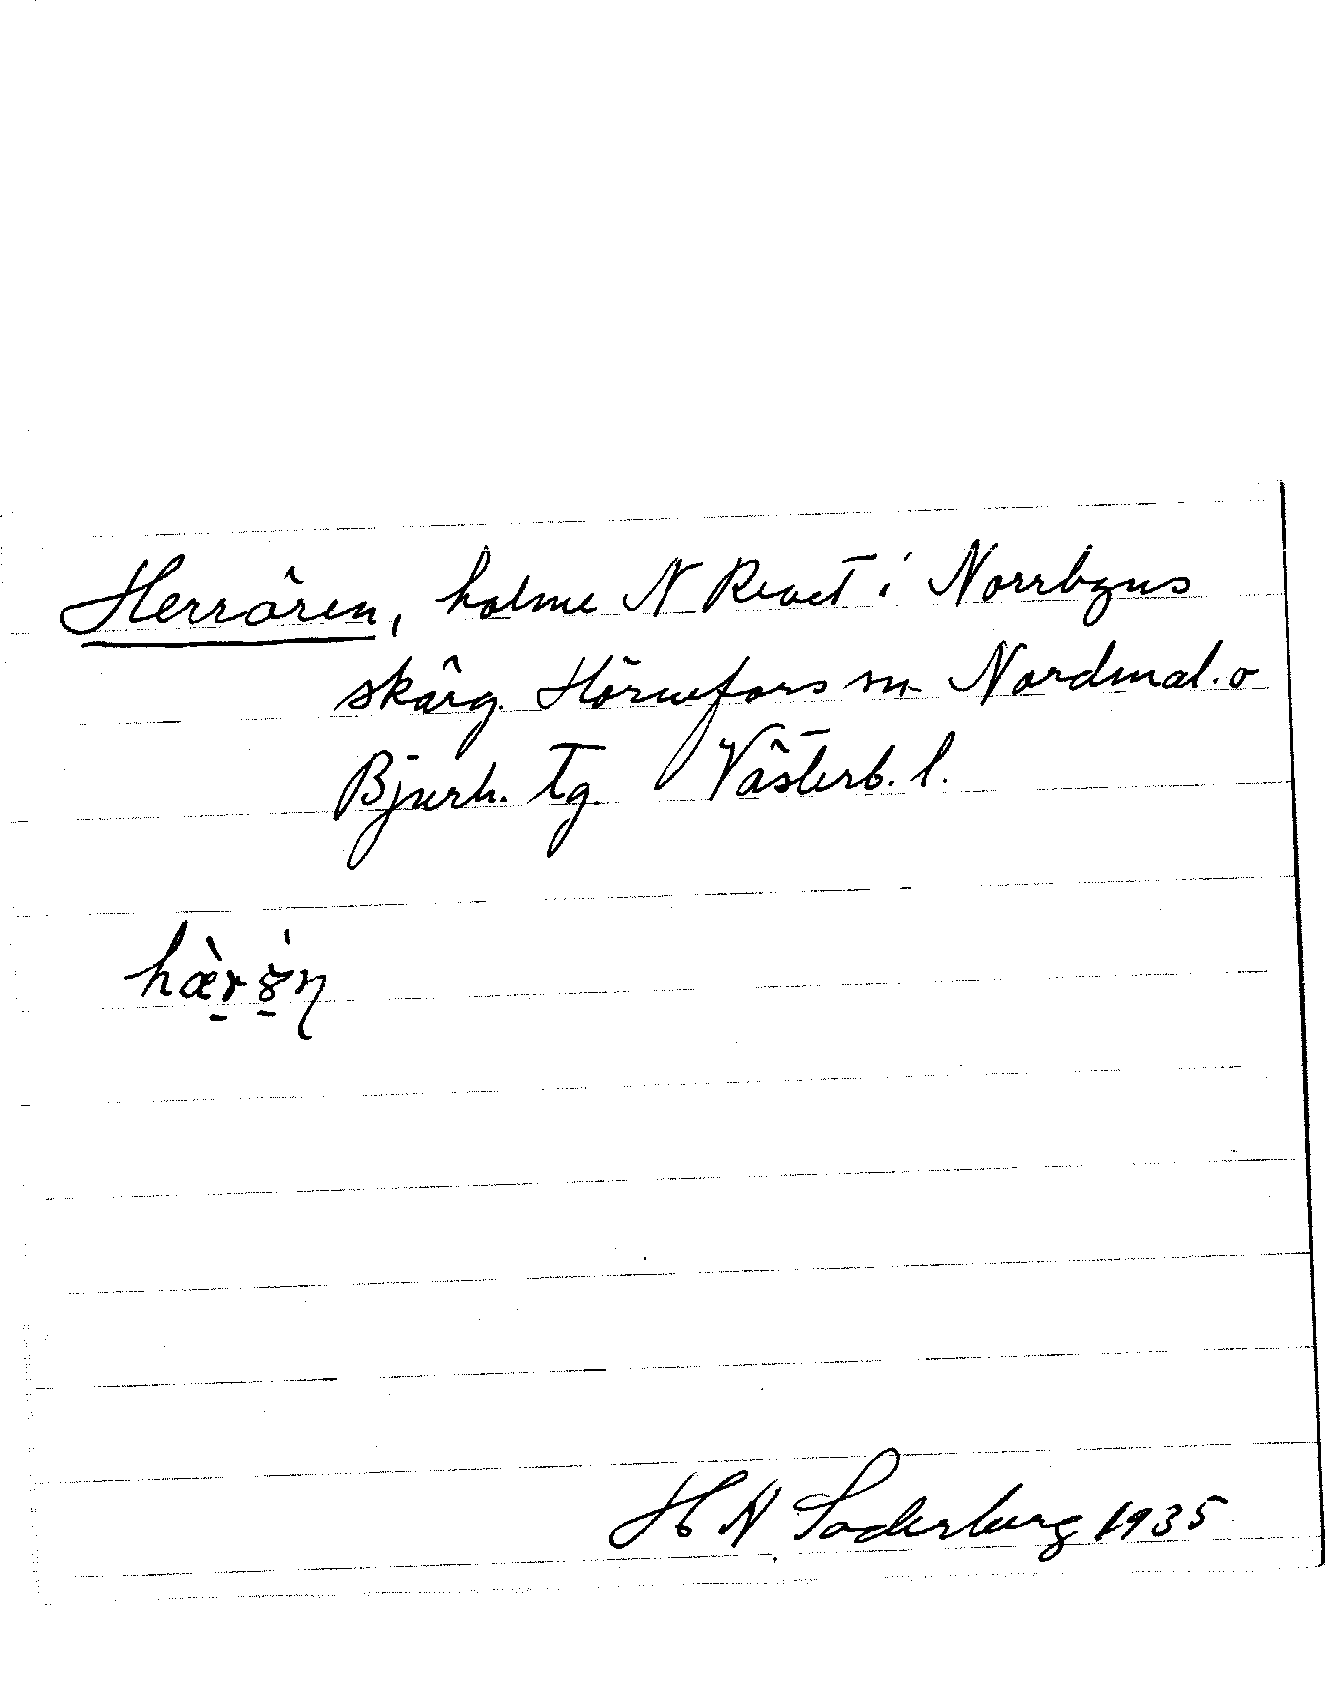 Herrören, holme N Revet i Norrbyns
skärg. Hörnefors sn Nordmal. o
Bjurh. tg. Västerb. l.
hæ̀r
H N Söderberg 1935